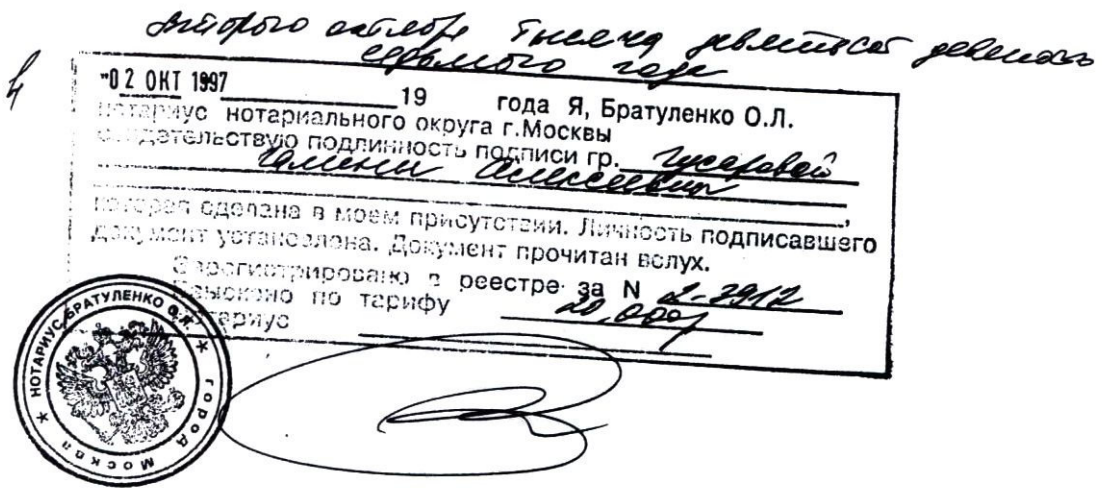 Второго октября тысяча девятьсот девяносто
седьмого года
"02 ОКТ 1997 19 года Я, Братуленко О.Л.
нотариус нотариального округа г.Москвы
свидетельствую подлинность подписи гр. Гусаровой
Алексеевны
которая сделана в моем присутствии. Личность подписавшего
документ установлена. Документ прочитан вслух.
Зарегистрировано в реестре за N 2-3912
Взыскано по тарифу 20.000р
Нотариус
НОТАРИУС БРАТУЛЕНКО О.Л. * город Москва *